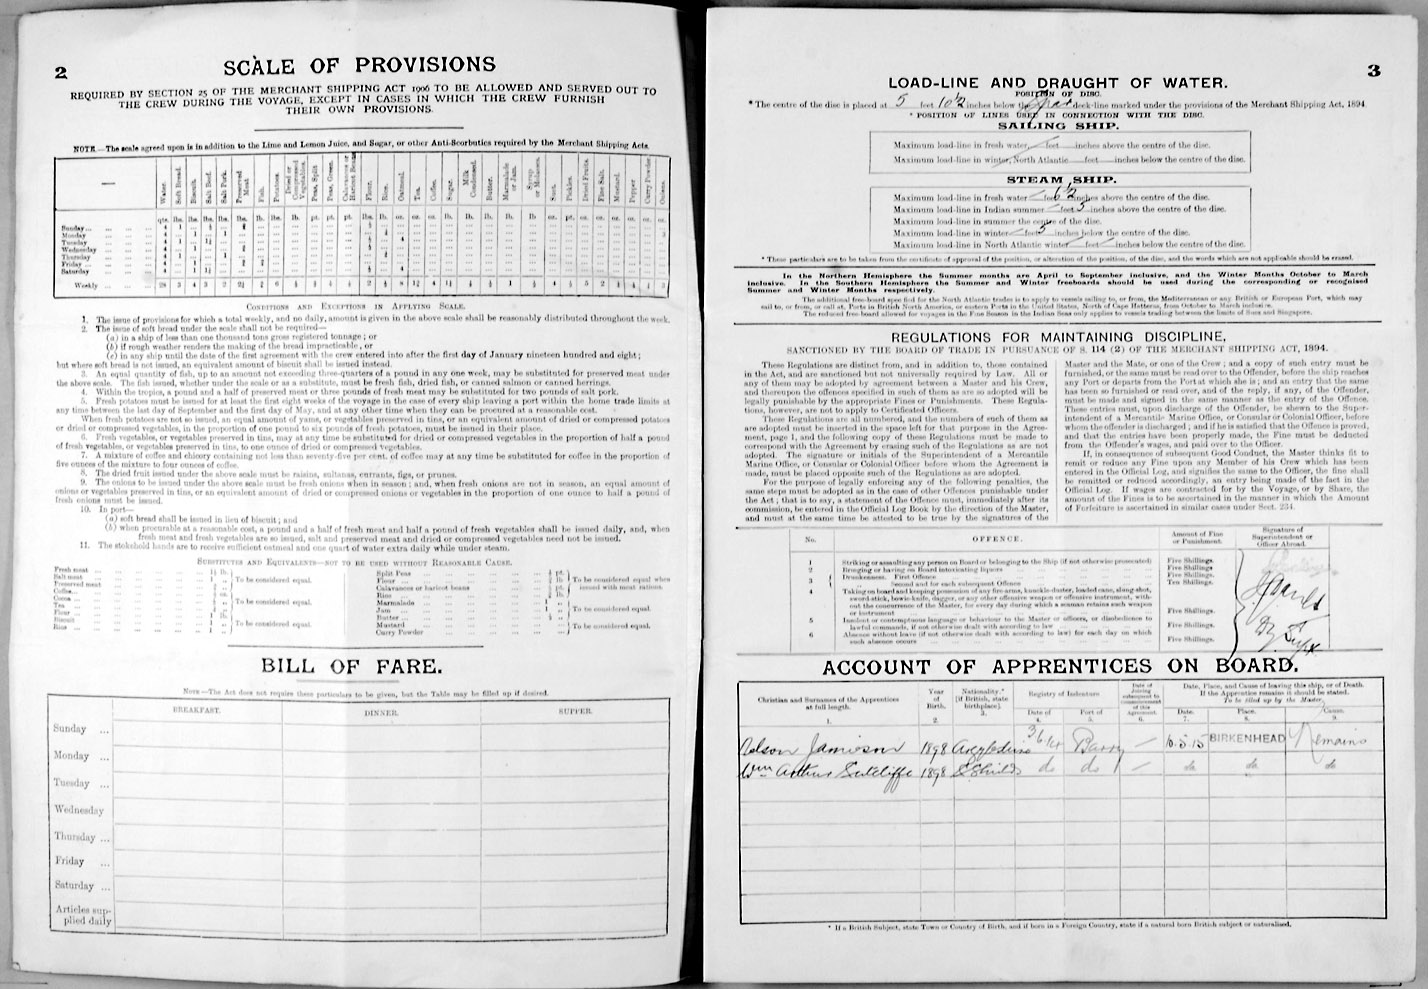 2
SCALE OF PROVISIONS
REQUIRED BY SECTION 25 OF THE MERCHANT SHIPPING ACT 1906 TO BE ALLOWED AND SERVED OUT TO
THE CREW DURING THE VOYAGE, EXCEPT IN CASES IN WHICH THE CREW FURNISH
THEIR OWN PROVISIONS.
NOTE.—The scale agreed upon is in addition to the Lime and Lemon Juice, and Sugar, or other Anti-Scorbutics required by the Merchant Shipping Acts.
Water. Soft Bread. Biscuit. Salt Beef. Salt Pork. Preserved Meat Fish. Potatoes. Dried or Compressed Vegetables. Peas, Split Peas, Green. Calavances or Haricot Beans Flour. Rice. Oatmeal. Tea. Coffee. Sugar. Milk Condensed. Butter. Marmalade or Jam. Syrup or Molasses. Suet. Pickles. Dried Fruits. Fine Salt. Mustard. Pepper Curry Powder Onions.
Sunday
Monday
Tuesday
Wednesday
Thursday
Friday
Saturday
Weekly
CONDITIONS AND EXCEPTIONS IN APPLYING SCALE.
1. The issue of provisions for which a total weekly, and no daily, amount is given in the above scale shall be reasonably distributed throughout the week.
2. The issue of soft bread under the scale shall not be required—
(a) in a ship of less than one thousand tons gross registered tonnage; or
(b) if rough weather renders the making of the bread impracticable, or
(c) in any ship until the date of the first agreement with the crew entered into after the first day of January nineteen hundred and eight;
but where soft bread is not issued, an equivalent amount of biscuit shall be issued instead.
3. An equal quantity of fish, up to an amount not exceeding three-quarters of a pound in any one week, may be substituted for preserved meat under
the above scale. The fish issued, whether under the scale or as a substitute, must be fresh fish, dried fish, or canned salmon or canned herrings.
4. Within the tropics, a pound and a half of preserved meat or three pounds of fresh meat may be substituted for two pounds of salt pork.
5. Fresh potatoes must be issued for at least the first eight weeks of the voyage in the case of every ship leaving a port within the home trade limits at
any time between the last day of September and the first day of May, and at any other time when they can be procured at a reasonable cost.
When fresh potatoes are not so issued, an equal amount of yams, or vegetables preserved in tins, or an equivalent amount of dried or compressed potatoes
or dried or compressed vegetables, in the proportion of one pound to six pounds of fresh potatoes, must be issued in their place.
6. Fresh vegetables, or vegetables preserved in tins, may at any time be substituted for dried or compressed vegetables in the proportion of half a pound
of fresh vegetables, or vegetables preserved in tins, to one ounce of dried or compressed vegetables.
7. A mixture of coffee and chicory containing not less than seventy-five per cent. of coffee may at any time be substituted for coffee in the proportion of
five ounces of the mixture to four ounces of coffee.
8. The dried fruit issued under the above scale must be raisins, sultanas, currants, figs, or prunes.
9. The onions to be issued under the above scale must be fresh onions when in season; and, when fresh onions are not in season, an equal amount of
onions or vegetables preserved in tins, or an equivalent amount of dried or compressed onions or vegetables in the proportion of one ounce to half a pound of
fresh onions must be issued.
10. In port—
(a) soft bread shall be issued in lieu of biscuit; and
(b) when procurable at a reasonable cost, a pound and a half of fresh meat and half a pound of fresh vegetables shall be issued daily, and, when
fresh meat and fresh vegetables are so issued, salt and preserved meat and dried or compressed vegetables need not be issued.
11. The stokehold hands are to receive sufficient oatmeal and one quart of water extra daily while under steam.
SUBSTITUTES AND EQUIVALENTS—NOT TO BE USED WITHOUT REASONABLE CAUSE.
Fresh meat
Salt meat To be considered equal.
Preserved meat
Coffee
Cocoa To be considered equal.
Tea
Flour
Biscuit To be considered equal.
Rice
Split Peas
Flour To be considered equal when
Calavances or haricot beans issued with meat rations.
Rice
Marmalade
Jam To be considered equal.
Butter
Mustard To be considered equal.
Curry Powder
BILL OF FARE.
NOTE—The Act does not require these particulars to be given, but the Table may be filled up if desired.
BREAKFAST. DINNER. SUPPER.
Sunday ...
Monday ...
Tuesday ...
Wednesday
Thursday ...
Friday ...
Saturday ...
Articles sup-
plied daily
3
LOAD-LINE AND DRAUGHT OF WATER.
POSITION OF DISC.
* The centre of the disc is placed at 5 feet 10½ inches below the Spar deck-line marked under the provisions of the Merchant Shipping Act, 1894.
* POSITION OF LINES USED IN CONNECTION WITH THE DISC.
SAILING SHIP.
Maximum load-line in fresh water, feet inches above the centre of the disc.
Maximum load-line in winter, North Atlantic feet inches below the centre of the disc.
STEAM SHIP.
Maximum load-line in fresh water feet 6½ inches above the centre of the disc.
Maximum load-line in Indian summer feet 5 inches above the centre of the disc.
Maximum load-line in summer the centre of the disc.
Maximum load-line in winter feet 5 inches below the centre of the disc.
Maximum load-line in North Atlantic winter feet inches below the centre of the disc.
* These particulars are to be taken from the certificate of approval of the position, or alteration of the position, of the disc, and the words which are not applicable should be erased.
In the Northern Hemisphere the Summer months are April to September inclusive, and the Winter Months October to March
inclusive. In the Southern Hemisphere the Summer and Winter freeboards should be used during the corresponding or recognised
Summer and Winter Months respectively.
The additional free-board specified for the North Atlantic trades is to apply to vessels sailing to, or from, the Mediterranean or any British or European Port, which may
sail to, or from, or call at, Ports in British North America, or eastern Ports in the United States, North of Cape Hatteras, from October to March inclusive.
The reduced free-board allowed for voyages in the Fine Season in the Indian Seas only applies to vessels trading between the limits of Suez and Singapore.
REGULATIONS FOR MAINTAINING DISCIPLINE,
SANCTIONED BY THE BOARD OF TRADE IN PURSUANCE OF S. 114 (2) OF THE MERCHANT SHIPPING ACT, 1894.
These Regulations are distinct from, and in addition to, those contained
in the Act, and are sanctioned but not universally required by Law. All or
any of them may be adopted by agreement between a Master and his Crew,
and thereupon the offences specified in such of them as are so adopted will be
legally punishable by the appropriate Fines or Punishments. These Regula-
tions, however, are not to apply to Certificated Officers.
These Regulations are all numbered, and the numbers of such of them as
are adopted must be inserted in the space left for that purpose in the Agree-
ment, page 1, and the following copy of these Regulations must be made to
correspond with the Agreement by erasing such of the Regulations as are not
adopted. The signature or initials of the Superintendent of a Mercantile
Marine Office, or Consular or Colonial Officer before whom the Agreement is
made, must be placed opposite such of the Regulations as are adopted.
For the purpose of legally enforcing any of the following penalties, the
same steps must be adopted as in the case of other Offences punishable under
the Act; that is to say, a statement of the Offence must, immediately after its
commission, be entered in the Official Log Book by the direction of the Master,
and must at the same time be attested to be true by the signatures of the
Master and the Mate, or one of the Crew; and a copy of such entry must be
furnished, or the same must be read over to the Offender, before the ship reaches
any Port or departs from the Port at which she is; and an entry that the same
has been so furnished or read over, and of the reply, if any, of the Offender,
must be made and signed in the same manner as the entry of the Offence.
These entries must, upon discharge of the Offender, be shewn to the Super-
intendent of a Mercantile Marine Office, or Consular or Colonial Officer, before
whom the offender is discharged; and if he is satisfied that the Offence is proved,
and that the entries have been properly made, the Fine must be deducted
from the Offender's wages, and paid over to the Officer.
If, in consequence of subsequent Good Conduct, the Master thinks fit to
remit or reduce any Fine upon any Member of his Crew which has been
entered in the Official Log, and signifies the same to the Officer, the fine shall
be remitted or reduced accordingly, an entry being made of the fact in the
Official Log. If wages are contracted for by the Voyage, or by Share, the
amount of the Fines is to be ascertained in the manner in which the Amount
of Forfeiture is ascertained in similar cases under Sect. 234.
No. OFFENCE. Amount of Fine or Punishment. Signature of Superintendent or Officer Abroad.
1 Striking or assaulting any person on Board or belonging to the Ship (if not otherwise prosecuted) Five Shillings.
2 Bringing or having on Board intoxicating liquors Five Shillings.
3 Drunkenness. First Offence Five Shillings.
Second and for each subsequent Offence Ten Shillings.
4 Taking on board and keeping possession of any fire-arms, knuckle-duster, loaded cane, slung-shot,
sword-stick, bowie-knife, dagger, or any other offensive weapon or offensive instrument, with-
out the concurrence of the Master, for every day during which a seaman retains such weapon
or instrument Five Shillings.
5 Insolent or contemptuous language or behaviour to the Master or officers, or disobedience to
lawful commands, if not otherwise dealt with according to law Five Shillings.
6 Absence without leave (if not otherwise dealt with according to law) for each day on which
such absence occurs Five Shillings.
ACCOUNT OF APPRENTICES ON BOARD.
Christian and Surnames of the Apprentices at full length. Year of Birth. Nationality.* [If British, state birthplace]. Registry of Indenture Date of Port of Date of Joining subsequent to commencement of this Agreement. Date, Place, and Cause of leaving this ship, or of Death.
If the Apprentice remains it should be stated.
To be filled up by the Master.
Date. Place. Cause.
1. 2. 3. 4. 5. 6. 7. 8. 9.
Nelson Jamieson 1898 Barry — 10.5.15 BIRKENHEAD Remains
Wm Arthur Sutcliffe 1898 S Shields do do — do do do
* If a British Subject, state Town or Country of Birth, and if born in a Foreign Country, state if a natural born British subject or naturalised.